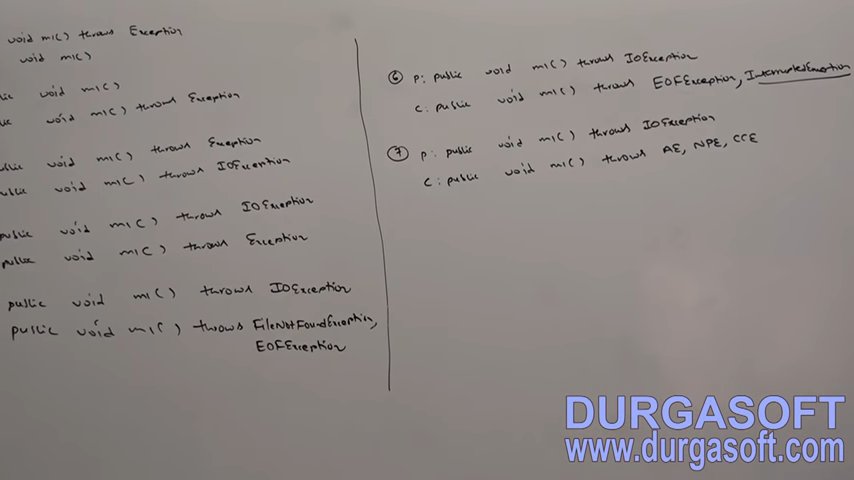 void m1() throws Exception
void m1()
lic void m1()
lic void m1() throws Exception
public void m1() throws Exception
public void m1() throws IOException
public void m1() throws IOException
public void m1() throws Exception
public void m1() throws IOException
public void m1() throws FileNotFoundException,
EOFException
⑥ P: public void m1() throws IOException
C: public void m1() throws EOFException, InterruptedException
⑦ P: public void m1() throws IOException
C: public void m1() throws AE, NPE, CCE
DURGASOFT
www.durgasoft.com